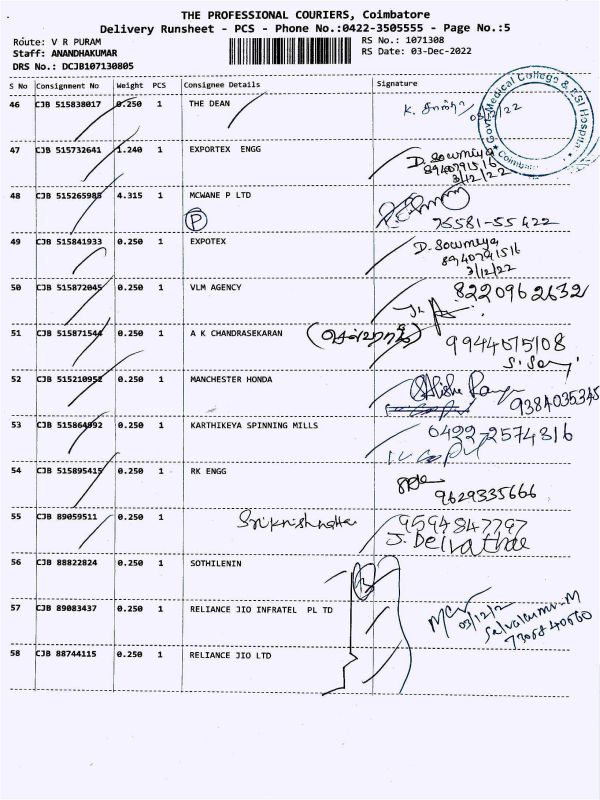 THE PROFESSIONAL COURIERS, Coimbatore
Delivery Runsheet - PCS - Phone No.:0422-3505555 - Page No.:5
Route: V R PURAM RS No.: 1071308
Staff: ANANDHAKUMAR RS Date: 03-Dec-2022
DRS No.: DCJB107130805
S No Consignment No Weight PCS Consignee Details Signature
46 CJB 515838017 0.250 1 THE DEAN
Govt. Medical College & ESI Hospital
Coimbatore
47 CJB 515732641 1.240 1 EXPORTEX ENGG D. Sowmiya
8940791516
3/12/22
48 CJB 515265985 4.315 1 MCWANE P LTD
P
75581-55422
49 CJB 515841933 0.250 1 EXPOTEX D. Sowmiya
8940791516
3/12/22
50 CJB 515872045 0.250 1 VLM AGENCY 8220962632
51 CJB 515871544 0.250 1 A K CHANDRASEKARAN 9944075108
52 CJB 515210952 0.250 1 MANCHESTER HONDA
9384035345
53 CJB 515864992 0.250 1 KARTHIKEYA SPINNING MILLS 0422-2574316
54 CJB 515895415 0.250 1 RK ENGG
9629335666
55 CJB 89059511 0.250 1 9594847797
56 CJB 88822824 0.250 1 SOTHILENIN
57 CJB 89083437 0.250 1 RELIANCE JIO INFRATEL PL TD
Selvakumar-M
58 CJB 88744115 0.250 1 RELIANCE JIO LTD